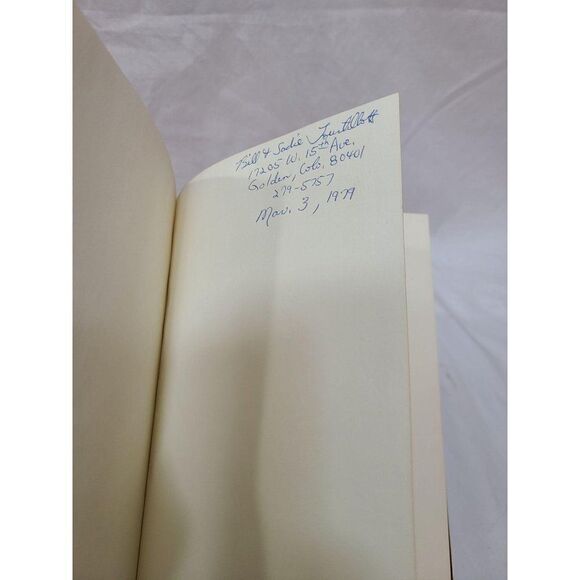 Bill & Sadie Tourtillott
17205 W. 15th Ave.
Golden, Colo. 80401
279-5757
Mar. 3, 1979